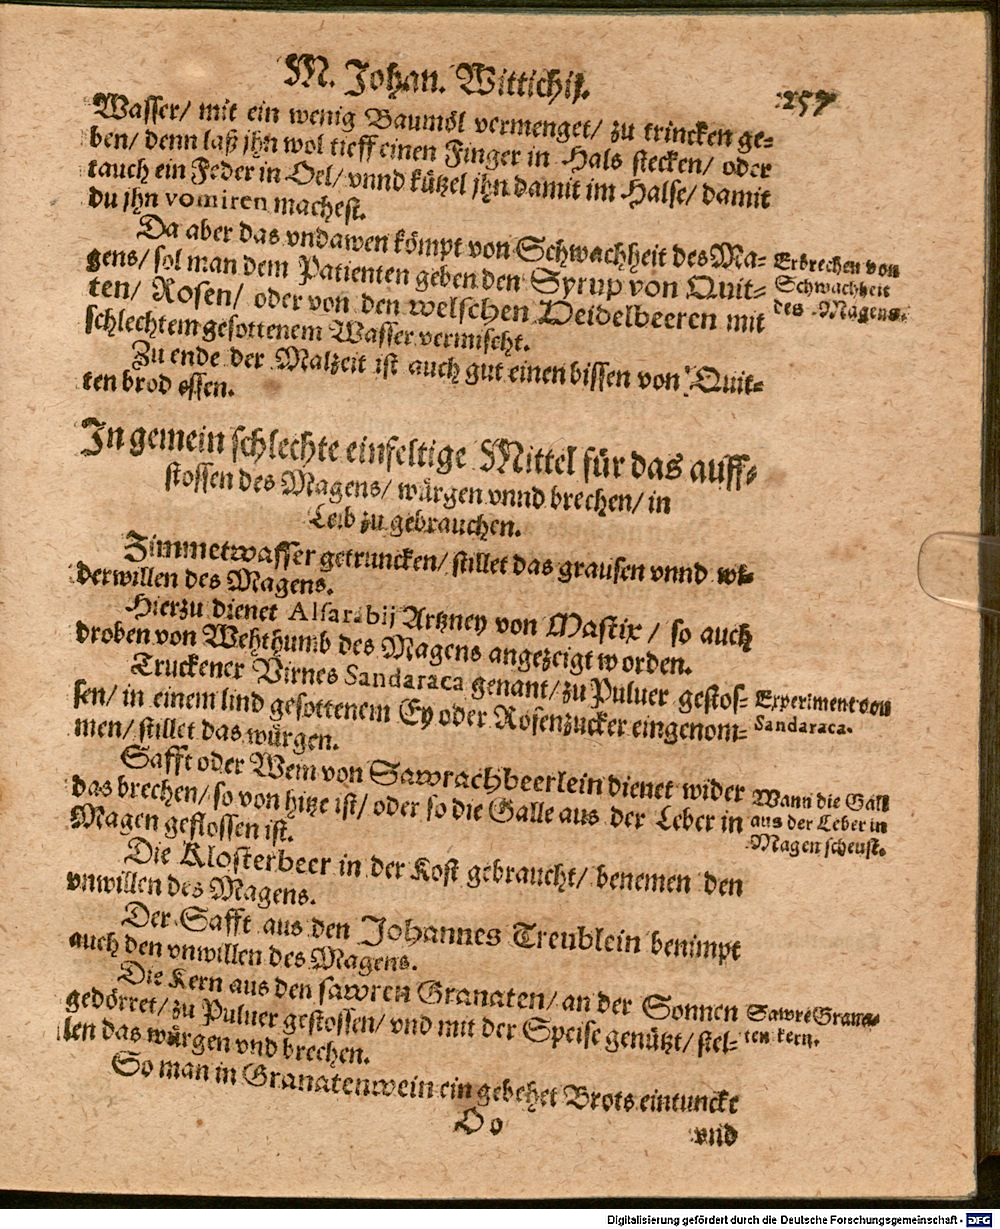 M. Johan. Wittichij.
257
Wasser/ mit ein wenig Baumöl vermenget/ zu trincken ge-
ben/ denn laß jhn wol tieff einen Finger in Hals stecken/ oder
tauch ein Feder in Oel/ vnnd kützel jhn damit im Halse/ damit
du jhn vomiren machest.
Da aber das vndawen kömpt von Schwachheit des Ma-
gens/ sol man dem Patienten geben den Syrup von Quit-
ten/ Rosen/ oder von den welschen Heidelbeeren mit
schlechtem gesottenem Wasser vermischt.
Erbrechen von
Schwachheit
des Magens.
Zu ende der Malzeit ist auch gut einen bissen von Quit-
ten brod essen.
In gemein schlechte einfeltige Mittel für das auff-
stossen des Magens/ würgen vnnd brechen/ in
Leib zu gebrauchen.
Zimmetwasser getruncken/ stillet das grausen vnnd wi-
derwillen des Magens.
Hierzu dienet Alfarabij Artzney von Mastix/ so auch
droben von Wehthumb des Magens angezeigt worden.
Truckener Virnes Sandaraca genant/ zu Puluer gestos-
sen/ in einem lind gesottenem Ey oder Rosenzucker eingenom-
men/ stillet das würgen.
Experiment von
Sandaraca.
Safft oder Wein von Sawrachbeerlein dienet wider
das brechen/ so von hitze ist/ oder so die Galle aus der Leber in
Magen geflossen ist.
Wann die Gall
aus der Leber in
Magen scheust.
Die Klosterbeer in der Kost gebraucht/ benemen den
vnwillen des Magens.
Der Safft aus den Johannes Treublein benimpt
auch den vnwillen des Magens.
Die Kern aus den sawren Granaten/ an der Sonnen
gedörret/ zu Puluer gestossen/ vnd mit der Speise genützt/ stel-
len das würgen vnd brechen.
Sawre Grana-
ten kern.
So man in Granatenwein ein gebehet Brots eintuncke
Oo
vnd
Digitalisierung gefördert durch die Deutsche Forschungsgemeinschaft - DFG